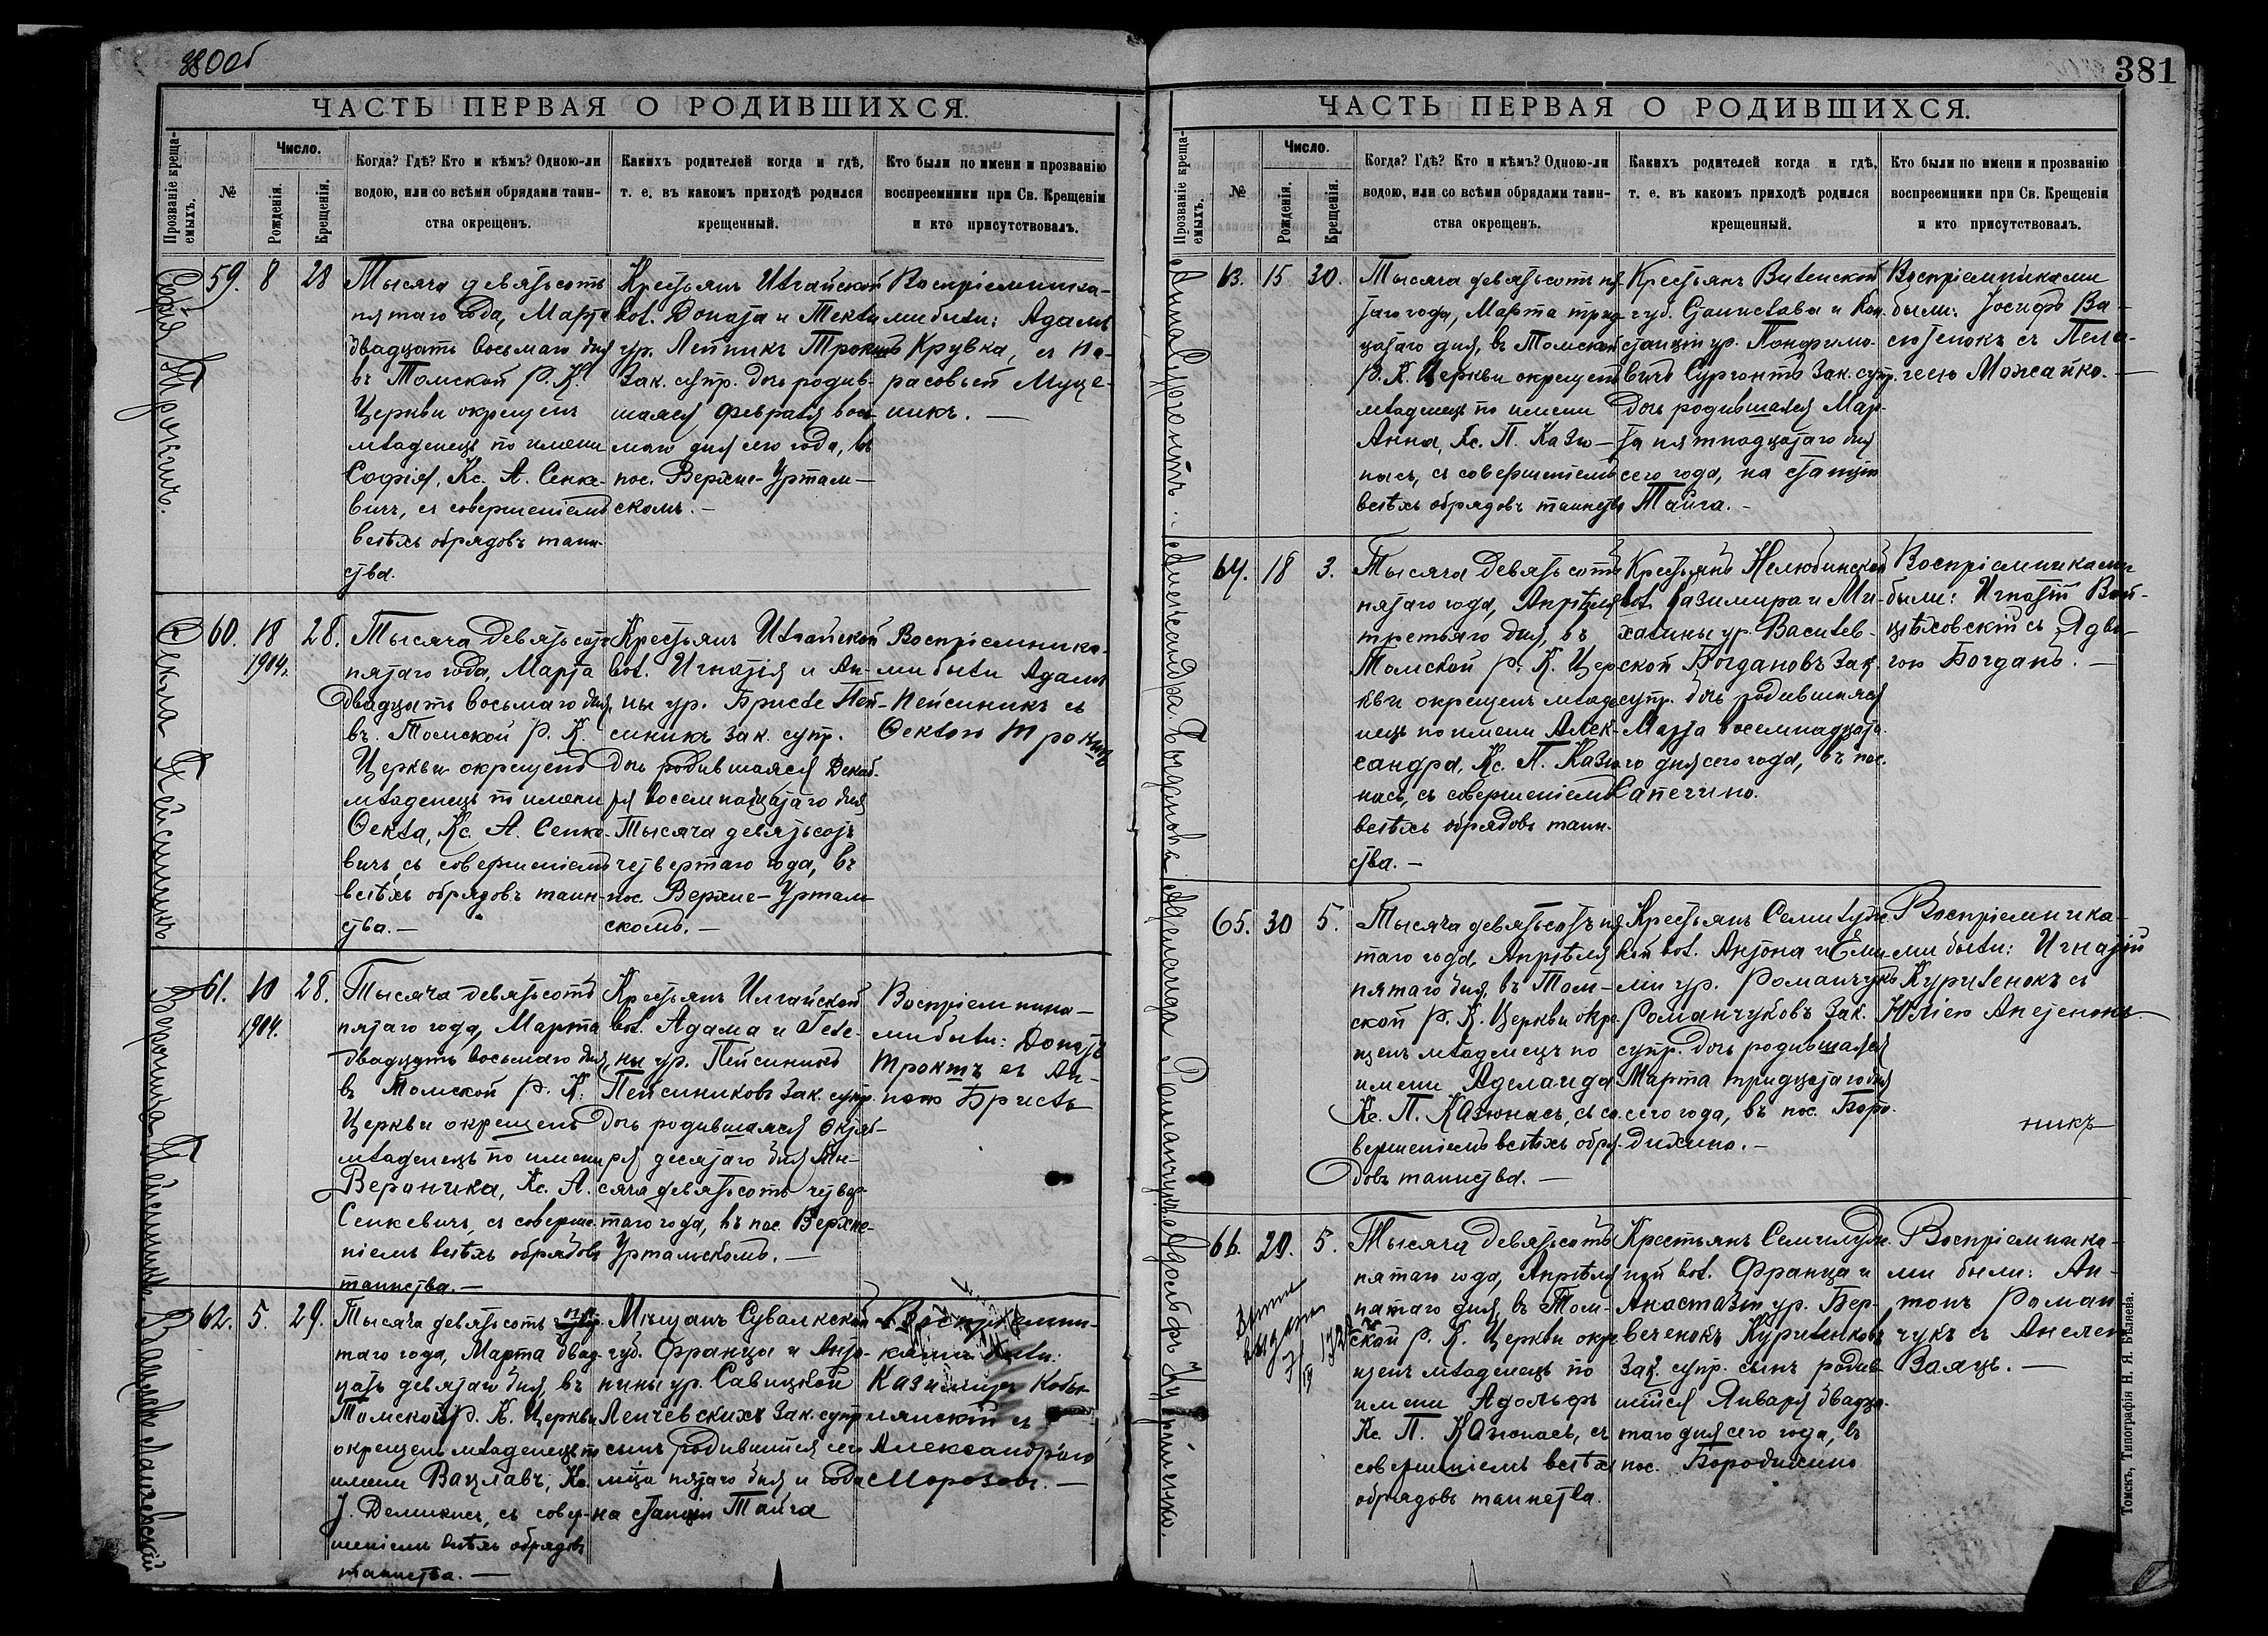 380об
ЧАСТЬ ПЕРВАЯ О РОДИВШИХСЯ.
Прозваніе креща-
емыхъ.
№
Число.
Рожденія.
Крещенія.
Когда? Гдѣ? Кто и кѣмъ? Одною-ли
водою, или со всѣми обрядами таин-
ства окрещенъ.
Какихъ родителей когда и гдѣ,
т. е. въ какомъ приходѣ родился
крещенный.
Кто были по имени и прозванію
воспреемники при Св. Крещеніи
и кто присутствовалъ.
Софія Трокимъ.
59. 8 28
Тысяча девятьсотъ
пятаго года, Марта
двадцать восьмаго дня
въ Томской Р. К.
Церкви окрещенъ
младенецъ по имени
Софія, Кс. А. Сенке-
вичъ, съ совершеніемъ
всѣхъ обрядовъ таин-
ства.
Крестьянъ Илгайской
вол. Доната и Теклі
ур. Лепникъ
Зак. супр. дочь родив-
шаяся февраля вось-
маго дня сего года, въ
пос. Верхне-Уртам-
скомъ. -
Воспріемника-
ми были: Адамъ
Крувка, съ
-расовьей
-никъ. —
Ѳекла Пейсиникъ
60. 18 28.
1904г.
Тысяча девятьсотъ
пятаго года, Марта
двадцать восьмаго дня,
въ Томской Р. К.
Церкви окрещенъ
младенецъ по имени
Ѳекла, Кс. А. Сенке-
вичъ, съ совершеніемъ
всѣхъ обрядовъ таин-
ства. —
Крестьянъ Илгайской
вол. Игнатія и Ан-
ны ур. Брисль Пей-
синикъ зак. супр.
дочь родившаяся Декаб-
ря восемнадцатаго дня
Тысяча девятьсотъ
четвертаго года, въ
пос. Верхне-Уртам-
скомъ. —
Воспріемника-
ми были Адамъ
Пейсиникъ съ
Ѳеклою
Вероника Пейсиникъ
61. 10 28.
1904.
Тысяча девятьсотъ
пятаго года, Марта
двадцать восьмаго дня,
въ Томской Р. К.
Церкви окрещенъ
младенецъ по имени
Вероника, Кс. А.
Сенкевичъ, съ соверше-
ніемъ всѣхъ обрядовъ
таинства. —
Крестьянъ Илгайской
вол. Адама и Геле-
ны ур. Пейсиникъ
Пейсиниковъ зак. супр.
дочь родившаяся Октяб-
ря десятаго дня Ты-
сяча девятьсотъ четвер-
таго года, въ пос. Верхне-
Уртамскомъ. —
Воспріемника-
ми были: Донатъ
съ Ан-
ною Брисль
Вацлавъ Ленчевскій
62. 5. 29.
Тысяча девятьсотъ пя-
таго года, Марта двад-
цать девятаго дня, въ
Томской Р. К. Церкви
окрещенъ младенецъ по
имени Вацлавъ, Кс.
І. Демикисъ, съ совер-
шеніемъ всѣхъ обрядовъ
таинства. —
Мѣщанъ Сувалкской
губ. Франца и Анто-
нины ур. Савицкой
Ленчевскихъ Зак. супр.
сынъ родившійся сего
мца пятаго дня и года
на станціи Тайга
Воспріемни-
ками были:
Казимиръ Кобы-
лянскій съ
Александрою
Морозовъ. —
381
ЧАСТЬ ПЕРВАЯ О РОДИВШИХСЯ.
Прозваніе креща-
емыхъ.
№
Число.
Рожденія.
Крещенія.
Когда? Гдѣ? Кто и кѣмъ? Одною-ли
водою, или со всѣми обрядами таин-
ства окрещенъ.
Какихъ родителей когда и гдѣ,
т. е. въ какомъ приходѣ родился
крещенный.
Кто были по имени и прозванію
воспреемники при Св. Крещеніи
и кто присутствовалъ.
Анна Сургонтъ.
63. 15 30.
Тысяча девятьсотъ пя-
таго года, Марта трид-
цатаго дня, въ Томской
Р. К. Церкви окрещенъ
младенецъ по имени
Анна, Кс. П. Казю-
насъ, съ совершеніемъ
всѣхъ обрядовъ таинства
Крестьянъ Виленской
губ. Станислава и Кон-
станціи ур.
Сургонтъ Зак. супр.
дочь родившаяся Мар-
та пятнадцатаго дня
сего года, на станціи
Тайга. -
Воспріемниками
были: Іосифъ Ва-
силенокъ съ Пела-
геею Можайко. —
Александра Богдановъ
64. 18 3.
Тысяча девятьсотъ
пятаго года, Апрѣля
третьяго дня, въ
Томской Р. К. Цер-
кви окрещенъ младе-
нецъ по имени Алек-
сандра, Кс. П. Казю-
насъ, съ совершеніемъ
всѣхъ обрядовъ таин-
ства. —
Крестьянъ Нелюбинской
вол. Казимира и Ми-
халины ур. Василев-
ской Богдановъ Зак.
супр. дочь родившаяся
Марта восемнадцата-
го дня сего года, въ пос.
Сапегино.
Воспріемниками
были: Игнатій Вой-
цѣховскій съ Ядви-
гою Богданъ. —
Аделаида Романчукъ
65. 30 5.
Тысяча девятьсотъ пя-
таго года, Апрѣля
пятаго дня, въ Том-
ской Р. К. Церкви окре-
щенъ младенецъ по
имени Аделаида
Кс. П. Казюнасъ, съ со-
вершеніемъ всѣхъ обря-
довъ таинства. —
Крестьянъ Семилуж-
ной вол. Антона и Еми-
ліи ур. Романчукъ
Романчуковъ Зак.
супр. дочь родившаяся
Марта тридцатаго дня
сего года, въ пос. Боро-
дихино. —
Воспріемника-
ми были: Игнатій
Куриленокъ съ
Юліею
никъ
Адольфъ Куриленко.
66. 29. 5.
выдана
Тысяча девятьсотъ
пятаго года, Апрѣля
пятаго дня, въ Том-
ской Р. К. Церкви окре-
щенъ младенецъ по
имени Адольфъ
Кс. П. Казюнасъ, съ
совершеніемъ всѣхъ
обрядовъ таинства.
Крестьянъ Семилуж-
ной вол. Франца и
Анастазіи ур. Бер-
веченокъ Куриленковъ
Зак. супр. сынъ родив-
шійся Января двадца-
таго дня сего года, въ
пос. Бородихино
Воспріемника-
ми были: Ан-
тонъ Роман-
чукъ съ Анелею
Ваяцъ. —
Томскъ, Типографія Н. Я. Бѣляева.